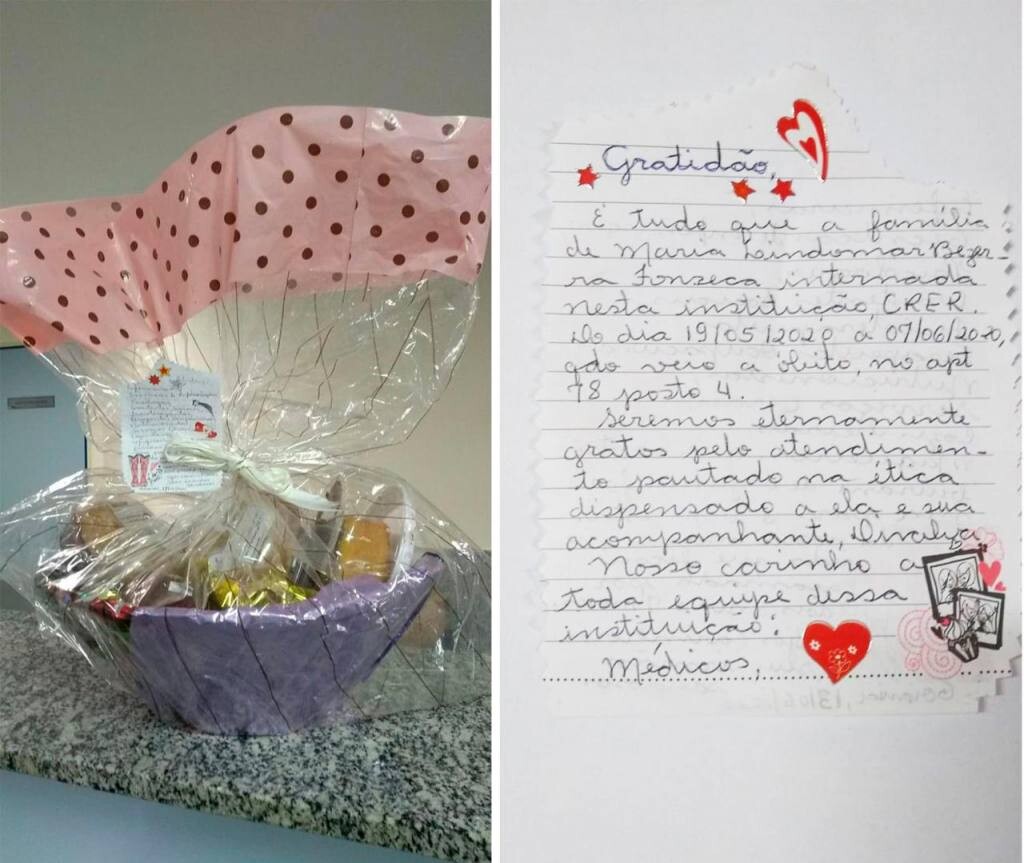 Gratidão,
É tudo que a família
de Maria Lindomar Bezer-
ra Fonseca internada
nesta instituição, CRER.
Do dia 19/05/2020 a 07/06/2020,
qdo veio a óbito, no apt
78 posto 4.
Seremos eternamente
gratos pelo atendimen-
to pautado na ética
dispensado a ela e sua
acompanhante,
Nosso carinho a
toda equipe dessa
instituição:
Médicos,